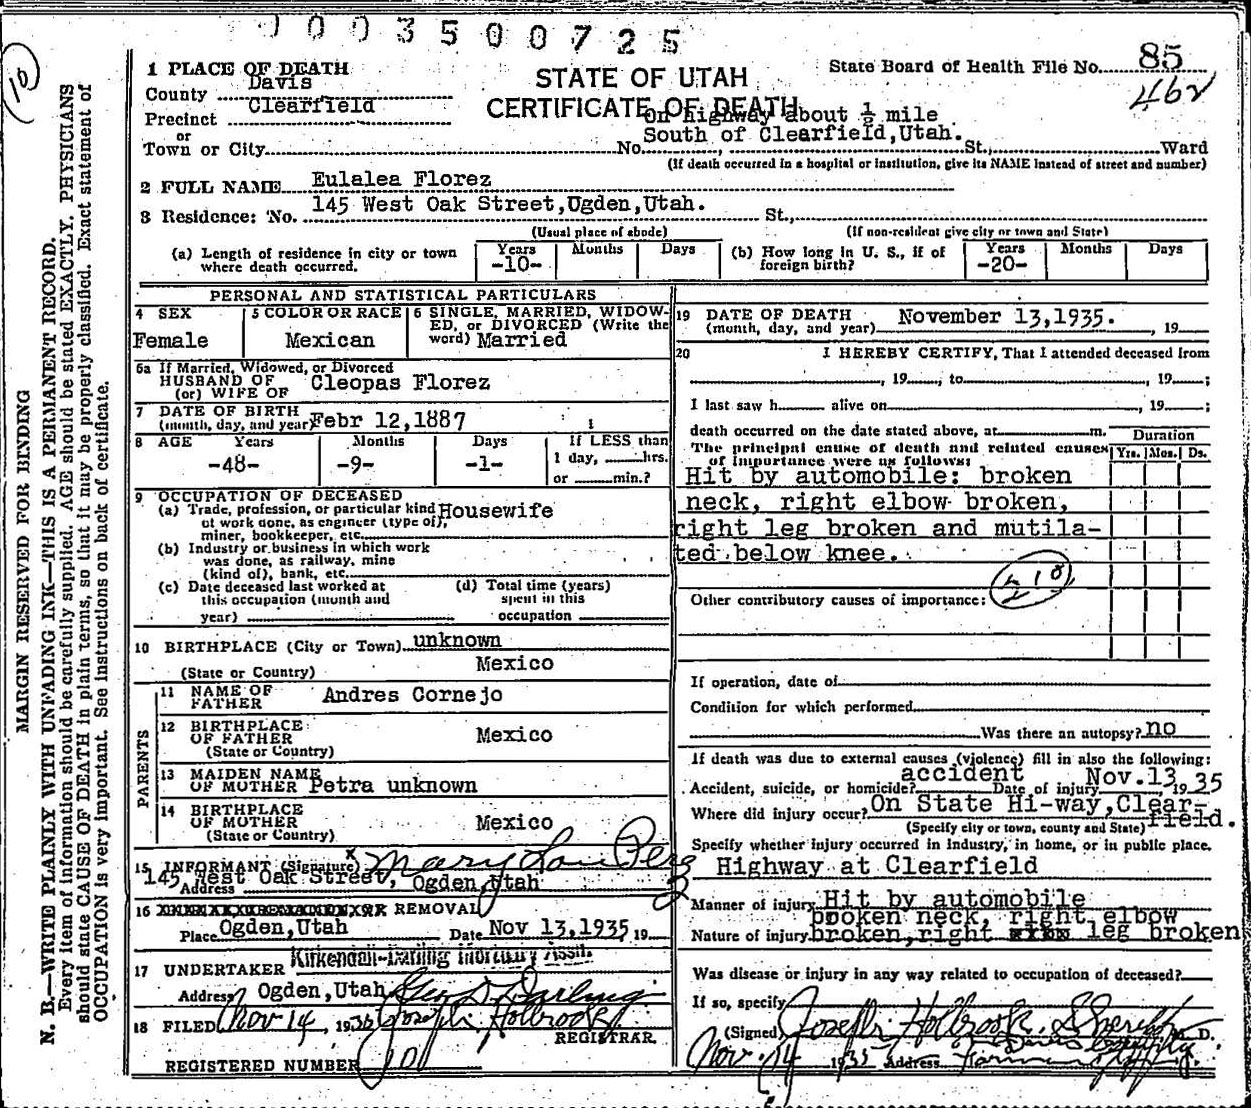 0003500725
(10)
MARGIN RESERVED FOR BINDING
N. B.—WRITE PLAINLY WITH UNFADING INK—THIS IS A PERMANENT RECORD.
Every item of information should be carefully supplied. AGE should be stated EXACTLY. PHYSICIANS
should state CAUSE OF DEATH in plain terms, so that it may be properly classified. Exact statement of
OCCUPATION is very important. See instructions on back of certificate.
STATE OF UTAH
CERTIFICATE OF DEATH
State Board of Health File No. 85
462
1 PLACE OF DEATH
County Davis
Precinct Clearfield
or
On highway about ½ mile
South of Clearfield,Utah.
Town or City No. St., Ward
(If death occurred in a hospital or institution, give its NAME instead of street and number)
2 FULL NAME Eulalea Florez
3 Residence: No. 145 West Oak Street,Ogden,Utah. St.,
(Usual place of abode) (If non-resident give city or town and State)
(a) Length of residence in city or town where death occurred. Years -10- Months Days
(b) How long in U. S., if of foreign birth? Years -20- Months Days
PERSONAL AND STATISTICAL PARTICULARS
4 SEX Female
5 COLOR OR RACE Mexican
6 SINGLE, MARRIED, WIDOW-
ED, or DIVORCED (Write the
word) Married
6a If Married, Widowed, or Divorced
HUSBAND OF
(or) WIFE OF Cleopas Florez
7 DATE OF BIRTH
(month, day, and year) Febr 12,1887 1
8 AGE Years -48- Months -9- Days -1-
If LESS than
1 day, hrs.
or min.?
9 OCCUPATION OF DECEASED
(a) Trade, profession, or particular kind Housewife
of work done, as engineer (type of),
miner, bookkeeper, etc.
(b) Industry or business in which work
was done, as railway, mine
(kind of), bank, etc.
(c) Date deceased last worked at
this occupation (month and
year)
(d) Total time (years)
spent in this
occupation
10 BIRTHPLACE (City or Town) unknown
(State or Country) Mexico
PARENTS
11 NAME OF
FATHER Andres Cornejo
12 BIRTHPLACE
OF FATHER Mexico
(State or Country)
13 MAIDEN NAME
OF MOTHER Petra unknown
14 BIRTHPLACE
OF MOTHER Mexico
(State or Country)
15 INFORMANT (Signature) x Mary Lou Perez
Address 145 West Oak Street, Ogden,Utah
16 REMOVAL
Place Ogden,Utah Date Nov 13,1935, 19
17 UNDERTAKER Kirkendall-Darling Mortuary Assn.
Address Ogden,Utah Geo D Darling
18 FILED Nov 14, 1935 Joseph Holbrook
REGISTRAR.
REGISTERED NUMBER 10
19 DATE OF DEATH
(month, day, and year) November 13,1935. , 19
20 I HEREBY CERTIFY, That I attended deceased from
, 19 , to , 19 ;
I last saw h alive on , 19 ;
death occurred on the date stated above, at m.
The principal cause of death and related causes
of importance were as follows:
Duration
Yrs. Mos. Ds.
Hit by automobile: broken
neck, right elbow broken,
right leg broken and mutila-
ted below knee.
210
Other contributory causes of importance:
If operation, date of
Condition for which performed
Was there an autopsy? no
If death was due to external causes (violence) fill in also the following:
Accident, suicide, or homicide? accident Date of injury Nov.13, 1935
Where did injury occur? On State Hi-way,Clear-
field.
(Specify city or town, county and State)
Specify whether injury occurred in industry, in home, or in public place.
Highway at Clearfield
Manner of injury Hit by automobile
broken neck, right elbow
Nature of injury broken,right leg broken
Was disease or injury in any way related to occupation of deceased?
If so, specify
(Signed) Joseph Holbrook, Sheriff M. D.
Davis County
Nov. 14 1935 Address Farmington